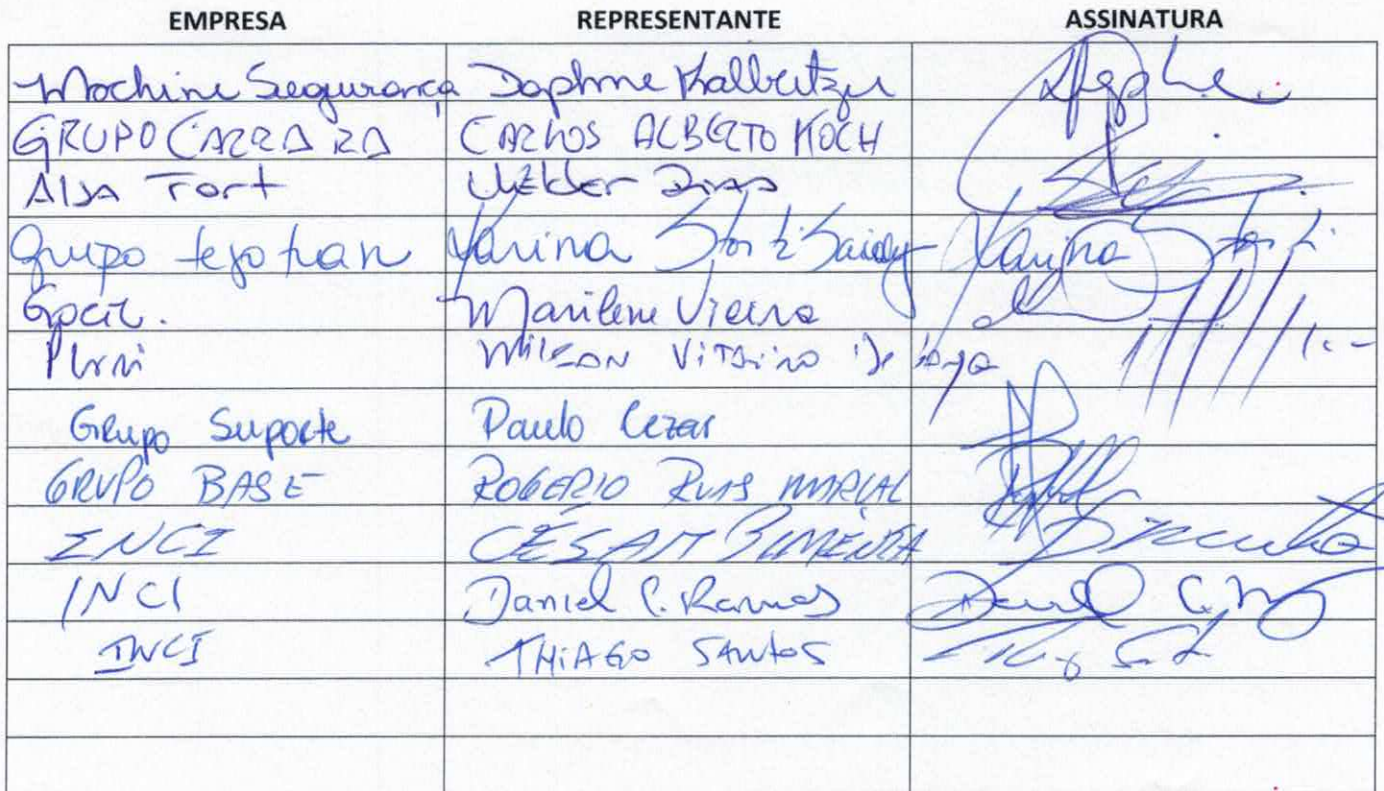 EMPRESA REPRESENTANTE ASSINATURA
Machine Segurança Daphne Kalbeitzer
GRUPO CARRARA CARLOS ALBERTO KOCH
Alsa Fort Dias
Grupo tejofran Karina Storti Karina Storti
Gocil. Marilene Vieira
MILTON
Grupo Suporte Paulo Cezar
GRUPO BASE ROGERIO RUAS MARCAL
INCI CÉSAR PIMENTA
INCI Daniel C. Ramos
INCI THIAGO SANTOS